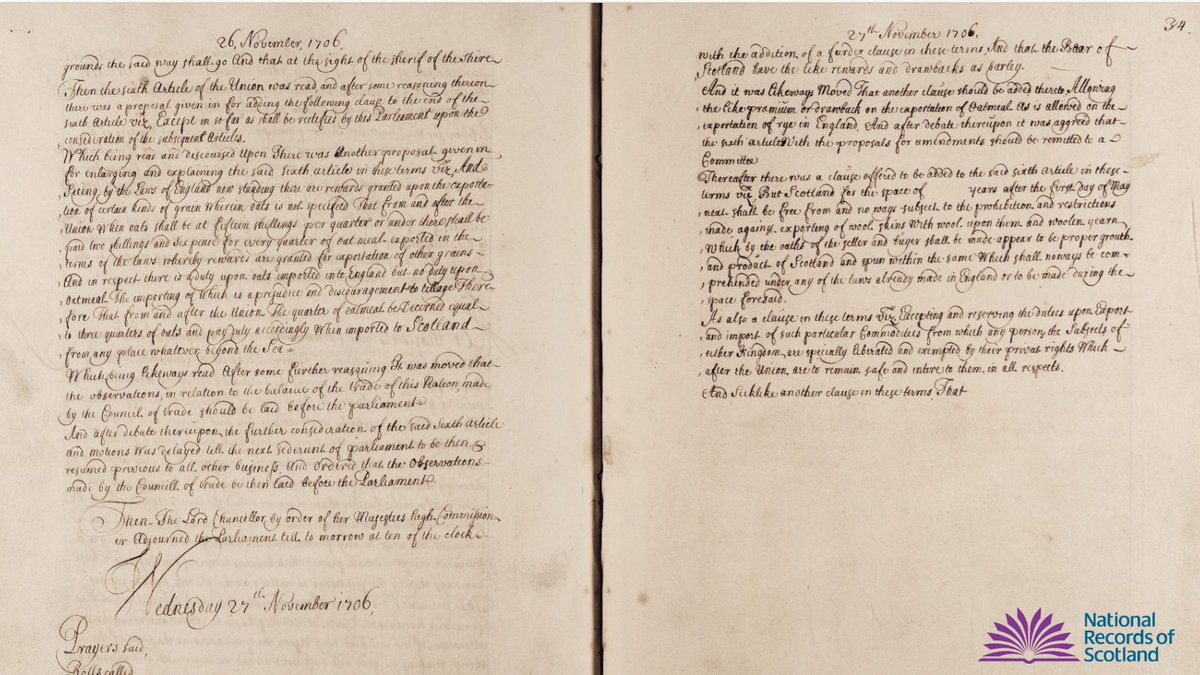 26, November, 1706,
grounds the said way shall go And that at the sight of the sherif of the shire
Then the sixth Article of the Union was read, and after some reasoning thereon
there was a proposal given in for adding the following clause to the end of the
sixth Article viz, Except in so far as shall be rectified by this Parliament upon the
consideration of the subsequent Articles.
Which being read and discoursed upon There was another proposal given in
for enlarging and explaining the said sixth article in these terms viz And
Seeing by the Laws of England now standing there are rewards granted upon the exporta-
tion of certain kinds of grain wherein oats is not specified That from and after the
Union When oats shall be at fifteen shillings per quarter or under there shall be
paid two shillings and six pence for every quarter of oat meal exported in the
terms of the laws whereby rewards are granted for exportation of other grains
And in respect there is a duty upon oats imported into England but no duty upon
oatmeal The importing of which is a prejudice and discouragement to tillage There-
fore That from and after the Union The quarter of oatmeal be Decerned equal
to three quarters of oats and pay duty accordingly When imported to Scotland
from any place whatever beyond the Sea
Which being likeways read After some further reasoning It was moved that
the observations, in relation to the balance of the trade of this Nation, made
by the Council of trade should be laid before the parliament
And after debate thereupon, the further consideration of the said Sixth Article
and motions was delayed till the next sederunt of parliament to be then
resumed previous to all other business, and ordered that the observations
made by the Councill of trade be then laid before the Parliament.
Then The Lord Chancellor by order of her Majesties high Commission-
er Adjourned the Parliament till to morrow at ten of the clock.
Wednesday 27th November 1706,
Prayers said,
Rolls called
27th November 1706,
34.
with the addition of a furder clause in these terms, And that the Bear of
Scotland have the like rewards and drawbacks as barley.
And it was likeways Moved That another clause should be added thereto Allowing
the like præmium or drawback on the exportation of Oatmeal As is allowed on the
exportation of rye in England, And after debate thereupon it was aggreed that
the sixth article with the proposals for amendments should be remitted to a
Committee
Thereafter there was a clause offered to be added to the said sixth Article in these
terms viz But Scotland for the space of years after the first day of May
next shall be free from and no ways subject to the prohibition and restrictions
made against exporting of wool, skins with wool upon them and woolen yearn
Which by the oaths of the seller and buyer shall be made appear to be proper growth
and product of Scotland and spun within the same Which shall noways be com-
prehended under any of the laws already made in England or to be made during the
space foresaid.
As also a clause in these terms viz Excepting and reserving the duties upon Export
and import of such particular Commodities from which any person, the Subjects of
either Kingdom, are specially liberated and exempted by their privat rights Which
after the Union are to remain safe and intire to them, in all respects.
And Sicklike another clause in these terms That
National
Records of
Scotland